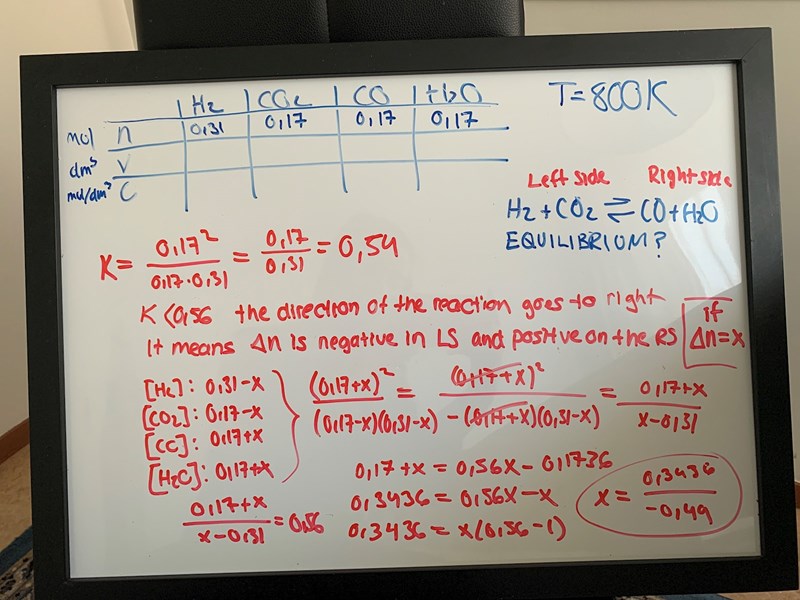 H₂ CO₂ CO H₂O
mol n 0,31 0,17 0,17 0,17
dm³ V
mol/dm³ C
T=800K
Left side Right side
H₂ + CO₂ ⇌ CO + H₂O
EQUILIBRIUM?
K = 0,17² / 0,17·0,31 = 0,17 / 0,31 = 0,54
K<0,56 the direction of the reaction goes to right
It means Δn is negative in LS and positive on the RS
if
Δn=x
[H₂]: 0,31-x
[CO₂]: 0,17-x
[CC]: 0,17+x
[H₂C]: 0,17+x
(0,17+x)² / (0,17-x)(0,31-x) = (0,17+x)² / -(0,17+x)(0,31-x) = 0,17+x / x-0,31
0,17+x / x-0,31 = 0,56
0,17+x = 0,56x - 0,1736
0,3436 = 0,56x - x
0,3436 = x(0,56-1)
x = 0,3436 / -0,49